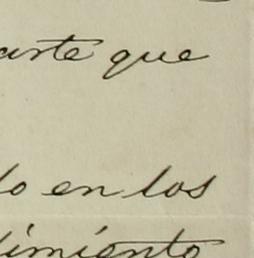 arte que
do en los
dimiento